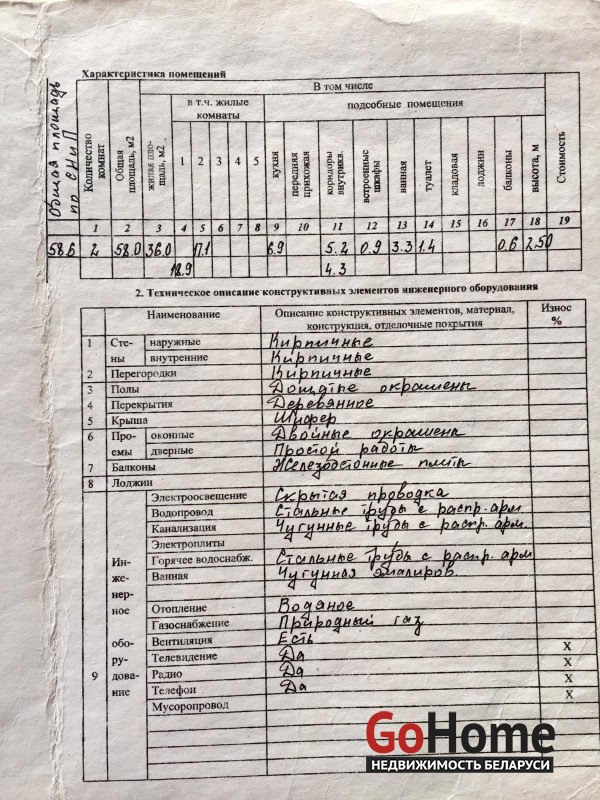 Характеристика помещений
Общая площадь по СНиП
Количество комнат
Общая площадь, м2
В том числе
жилая площадь, м2
в т.ч. жилые комнаты
подсобные помещения
1 2 3 4 5
кухня
передняя прихожая
коридоры внутрикв.
встроенные шкафы
ванная
туалет
кладовая
лоджии
балконы
высота, м
Стоимость
1 2 3 4 5 6 7 8 9 10 11 12 13 14 15 16 17 18 19
58.6 2 58.0 36.0 17.1 6.9 5.2 0.9 3.3 1.4 0.6 2.50
18.9 4.3
2. Техническое описание конструктивных элементов инженерного оборудования
Наименование Описание конструктивных элементов, материал, Износ
конструкция, отделочные покрытия %
1 Сте- наружные Кирпичные
ны внутренние Кирпичные
2 Перегородки Кирпичные
3 Полы Дощатые окрашены
4 Перекрытия Деревянное
5 Крыша Шифер
6 Про- оконные Двойные окрашены
емы дверные Простой работы
7 Балконы Железобетонные плиты
8 Лоджии
Электроосвещение Скрытая проводка
Водопровод Стальные трубы с распр. арм
Канализация Чугунные трубы с распр. арм.
Электроплиты
Ин- Горячее водоснабж. Стальные трубы с распр. арм
же- Ванная Чугунная эмалиров.
нер-
ное Отопление Водяное
Газоснабжение Природный газ
обо- Вентиляция Есть
ру- Телевидение Да X
9 дова- Радио Да X
ние Телефон Да X
Мусоропровод
GoHome
НЕДВИЖИМОСТЬ БЕЛАРУСИ